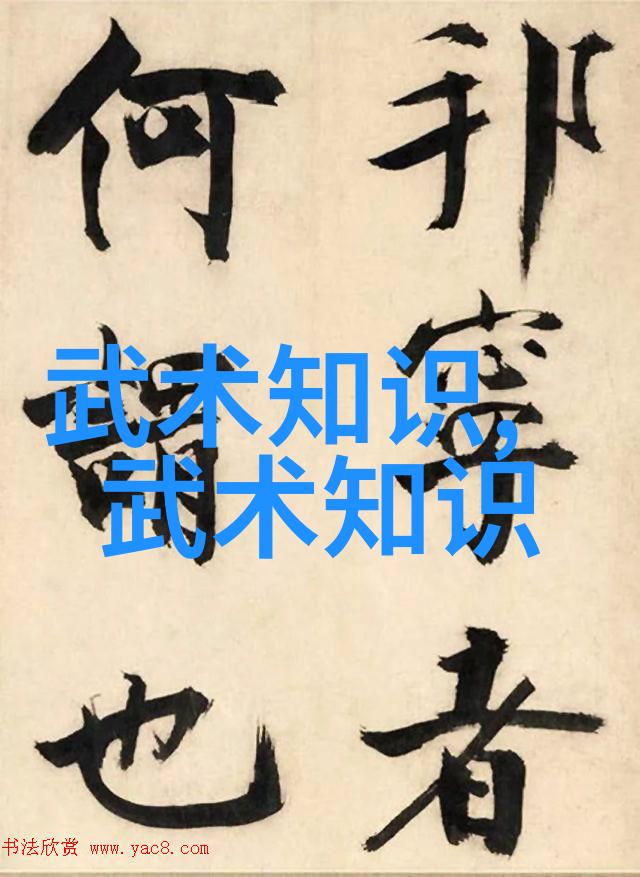 邦寧者
何謂也
武术知识,
武术知识
书法欣赏 www.yac8.com